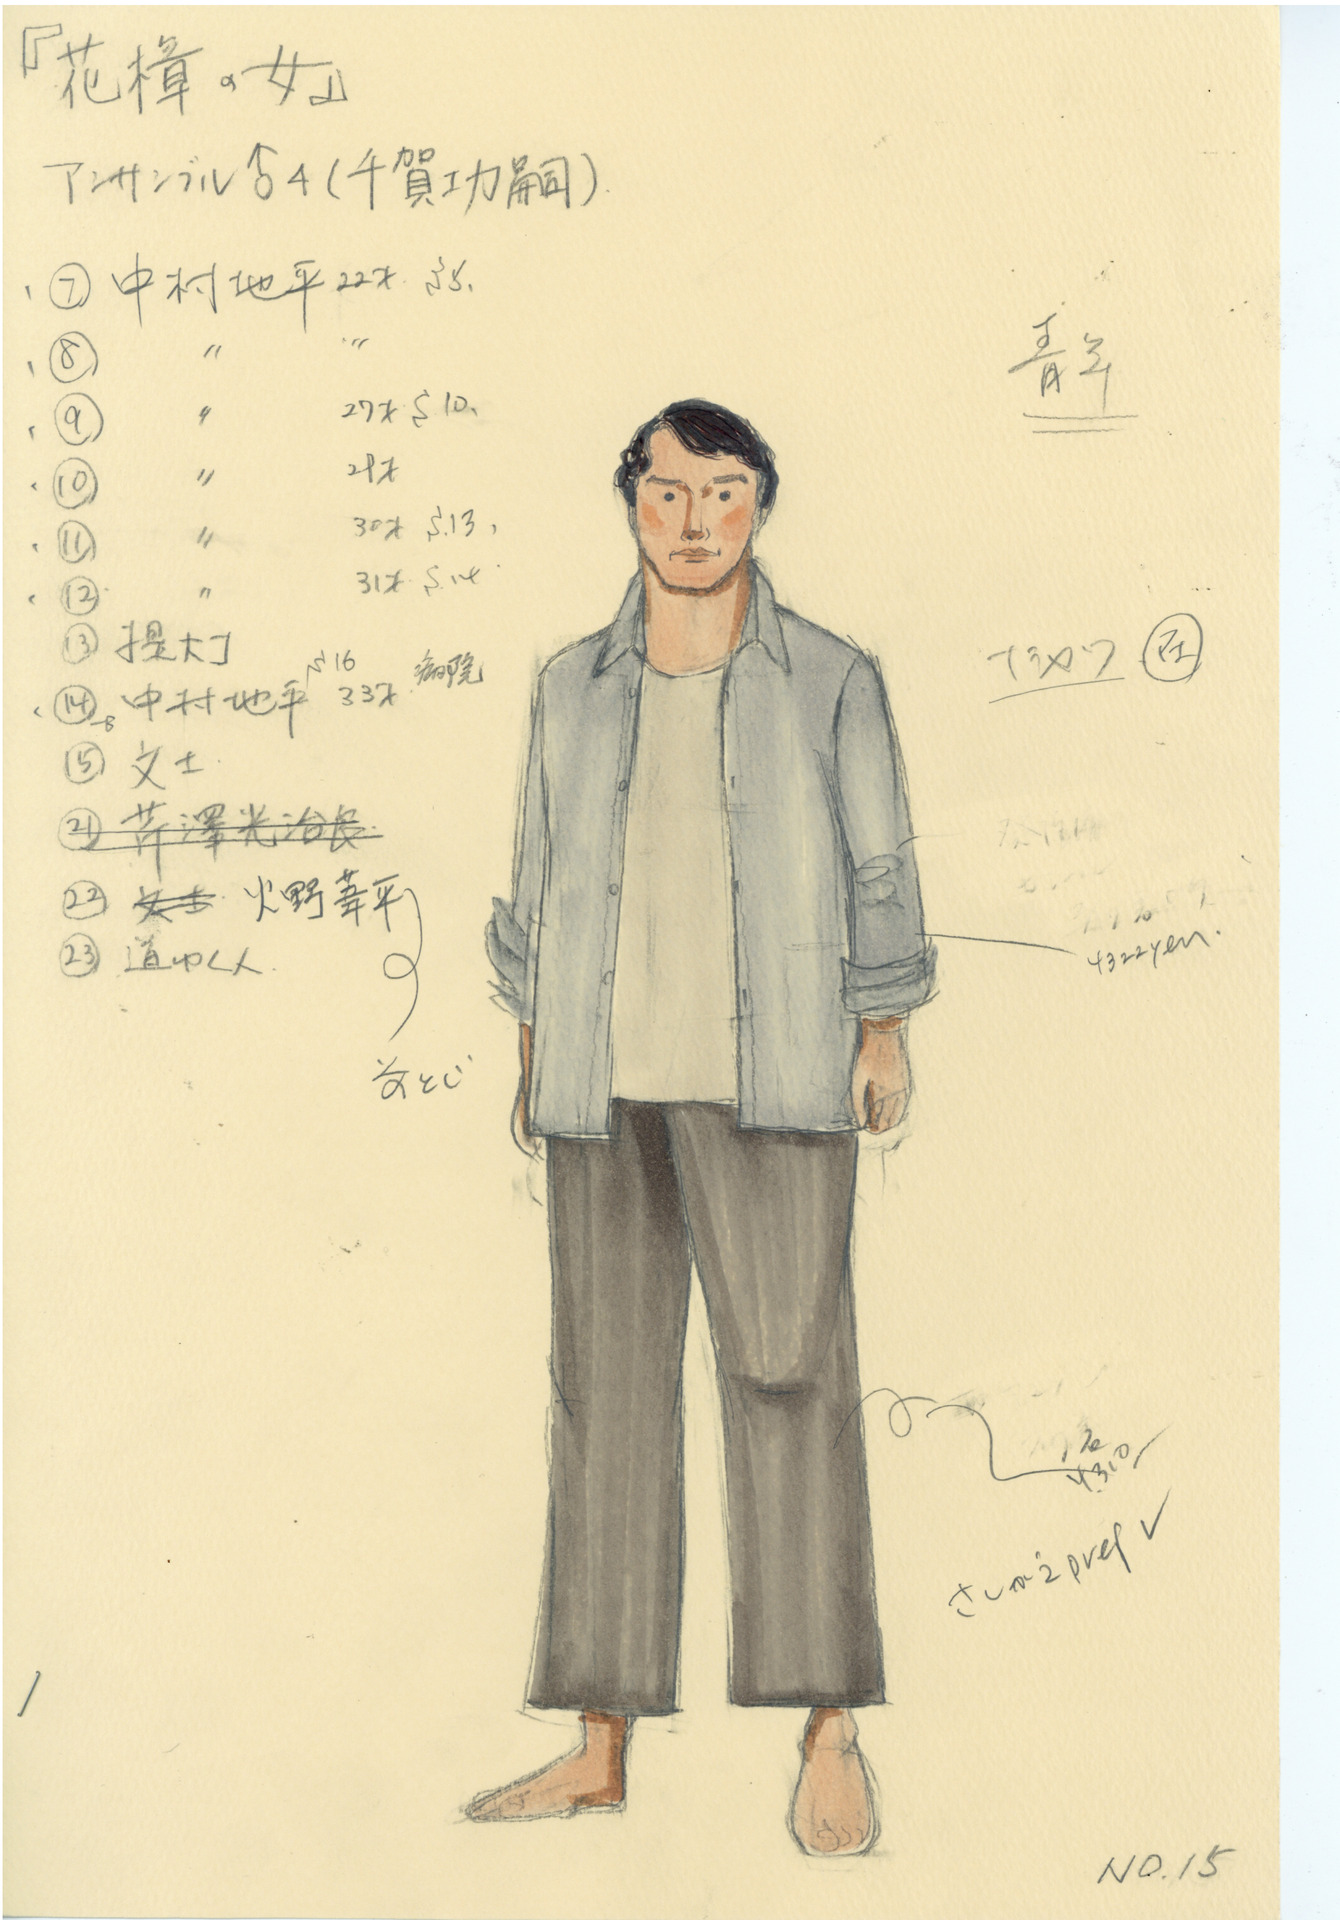 『花樟の女』
アンサンブル♂4(千賀功嗣)
⑦ 中村地平 22才 S5.
⑧ 〃 〃
⑨ 〃 27才 S10.
⑩ 〃 29才
⑪ 〃 30才 S.13.
⑫ 〃 31才 S.14
⑬ 提大工
⑭ 中村地平 33才 S16 病院
⑮ 文士
㉑ 芹澤光治良
㉒ 火野葦平
㉓ 道ゆく人
青年
4322yen.
4310
さしかえpref ✓
NO.15